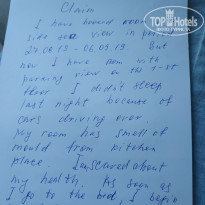 Claim
I have booked room
side sea view in peri
27.08.19 - 06.09.19. But
now I have room with
parking view on the 1-st
floor. I didn't sleep
last night because of
cars driving over.
My room has smell of
mould from kitchen
place. I'm scared about
my health. As soon as
I go to the bed, I begin
TOP HOTELS